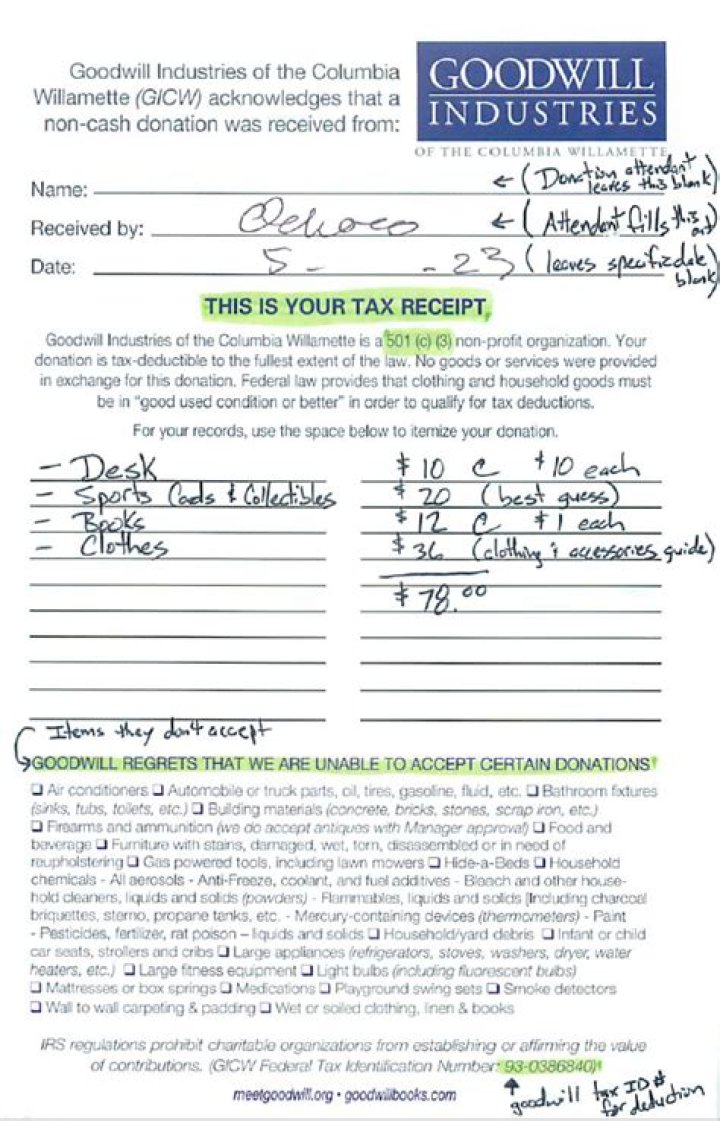 Goodwill Industries of the Columbia
Willamette (GICW) acknowledges that a
non-cash donation was received from:
GOODWILL
INDUSTRIES
OF THE COLUMBIA WILLAMETTE
Name: ← (Donation attendant
leaves this blank)
Received by: ← (Attendant fills this out)
Date: 5- -23 (leaves specific date
blank)
THIS IS YOUR TAX RECEIPT
Goodwill Industries of the Columbia Willamette is a 501 (c) (3) non-profit organization. Your
donation is tax-deductible to the fullest extent of the law. No goods or services were provided
in exchange for this donation. Federal law provides that clothing and household goods must
be in "good used condition or better" in order to qualify for tax deductions.
For your records, use the space below to itemize your donation.
- Desk $10 @ $10 each
- Sports Cads & Collectibles $20 (best guess)
- Books $12 @ $1 each
- Clothes $36 (clothing & accessories guide)
$78.00
Items they don't accept
GOODWILL REGRETS THAT WE ARE UNABLE TO ACCEPT CERTAIN DONATIONS
❑ Air conditioners ❑ Automobile or truck parts, oil, tires, gasoline, fluid, etc. ❑ Bathroom fixtures
(sinks, tubs, toilets, etc.) ❑ Building materials (concrete, bricks, stones, scrap iron, etc.)
❑ Firearms and ammunition (we do accept antiques with Manager approval) ❑ Food and
beverage ❑ Furniture with stains, damaged, wet, torn, disassembled or in need of
reupholstering ❑ Gas powered tools, including lawn mowers ❑ Hide-a-Beds ❑ Household
chemicals - All aerosols - Anti-Freeze, coolant, and fuel additives - Bleach and other house-
hold cleaners, liquids and solids (powders) - Flammables, liquids and solids [Including charcoal
briquettes, sterno, propane tanks, etc. - Mercury-containing devices (thermometers) - Paint
- Pesticides, fertilizer, rat poison – liquids and solids ❑ Household/yard debris ❑ Infant or child
car seats, strollers and cribs ❑ Large appliances (refrigerators, stoves, washers, dryer, water
heaters, etc.) ❑ Large fitness equipment ❑ Light bulbs (including fluorescent bulbs)
❑ Mattresses or box springs ❑ Medications ❑ Playground swing sets ❑ Smoke detectors
❑ Wall to wall carpeting & padding ❑ Wet or soiled clothing, linen & books
IRS regulations prohibit charitable organizations from establishing or affirming the value
of contributions. (GICW Federal Tax Identification Number: 93-0386840)
meetgoodwill.org • goodwillbooks.com
goodwill tax ID #
for deduction